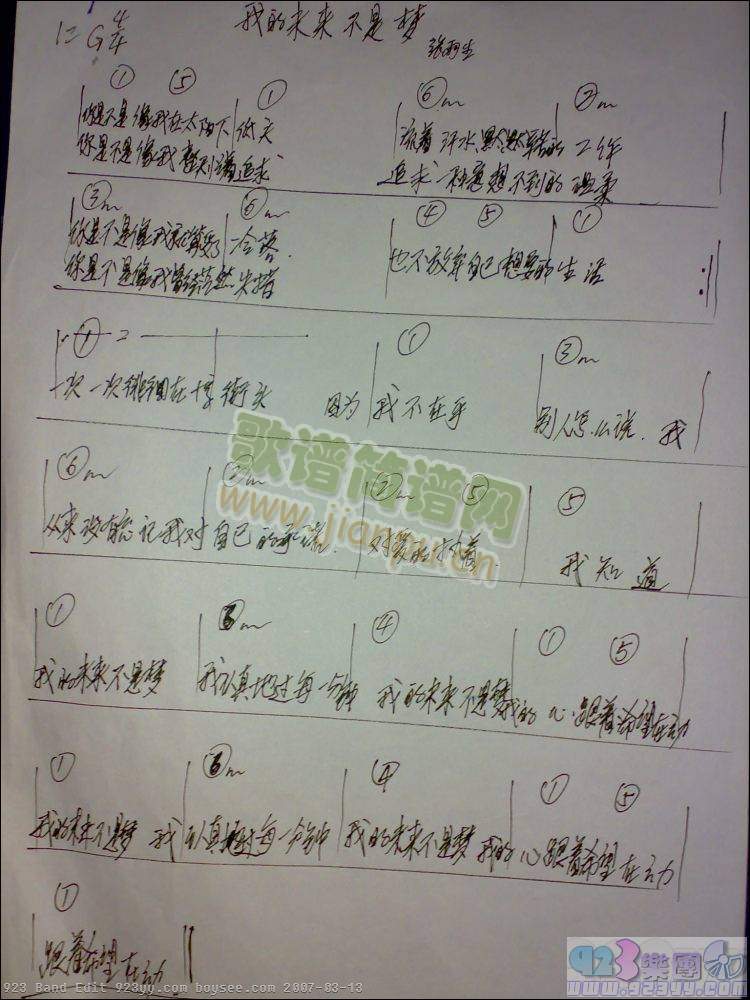 我的未来不是梦
1=G 4/4
张雨生
① ⑤ ① ⑥m ②m
你是不是像我在太阳下 低头 流着汗水默默辛苦的 工作
你是不是像我 整天 追求 追求一种意想不到的 温柔
③m ⑥m ④ ⑤ ①
你是不是像我就算受了 冷落 也不放弃自己 想要的 生活
你是不是像我曾经茫然 失措
① 2 ① ③m
一次一次徘徊在十字街头 因为 我不在乎 别人怎么说 我
⑥m ③m ②m ⑤ ⑤
从来没有忘记我对自己的承诺 对爱的执着 我知道
① ③m ④ ① ⑤
我的未来不是梦 我认真地过每一分钟 我的未来不是梦我的 心跟着希望在动
① ③m ④ ① ⑤
我的未来不是梦 我认真地过每一分钟 我的未来不是梦 我的心跟着希望在动
①
跟着希望在动
歌谱简谱网
www.jianpu.cn
923 Band Edit 923yy.com boysee.com 2007-03-13
923樂團
www.923yy.com